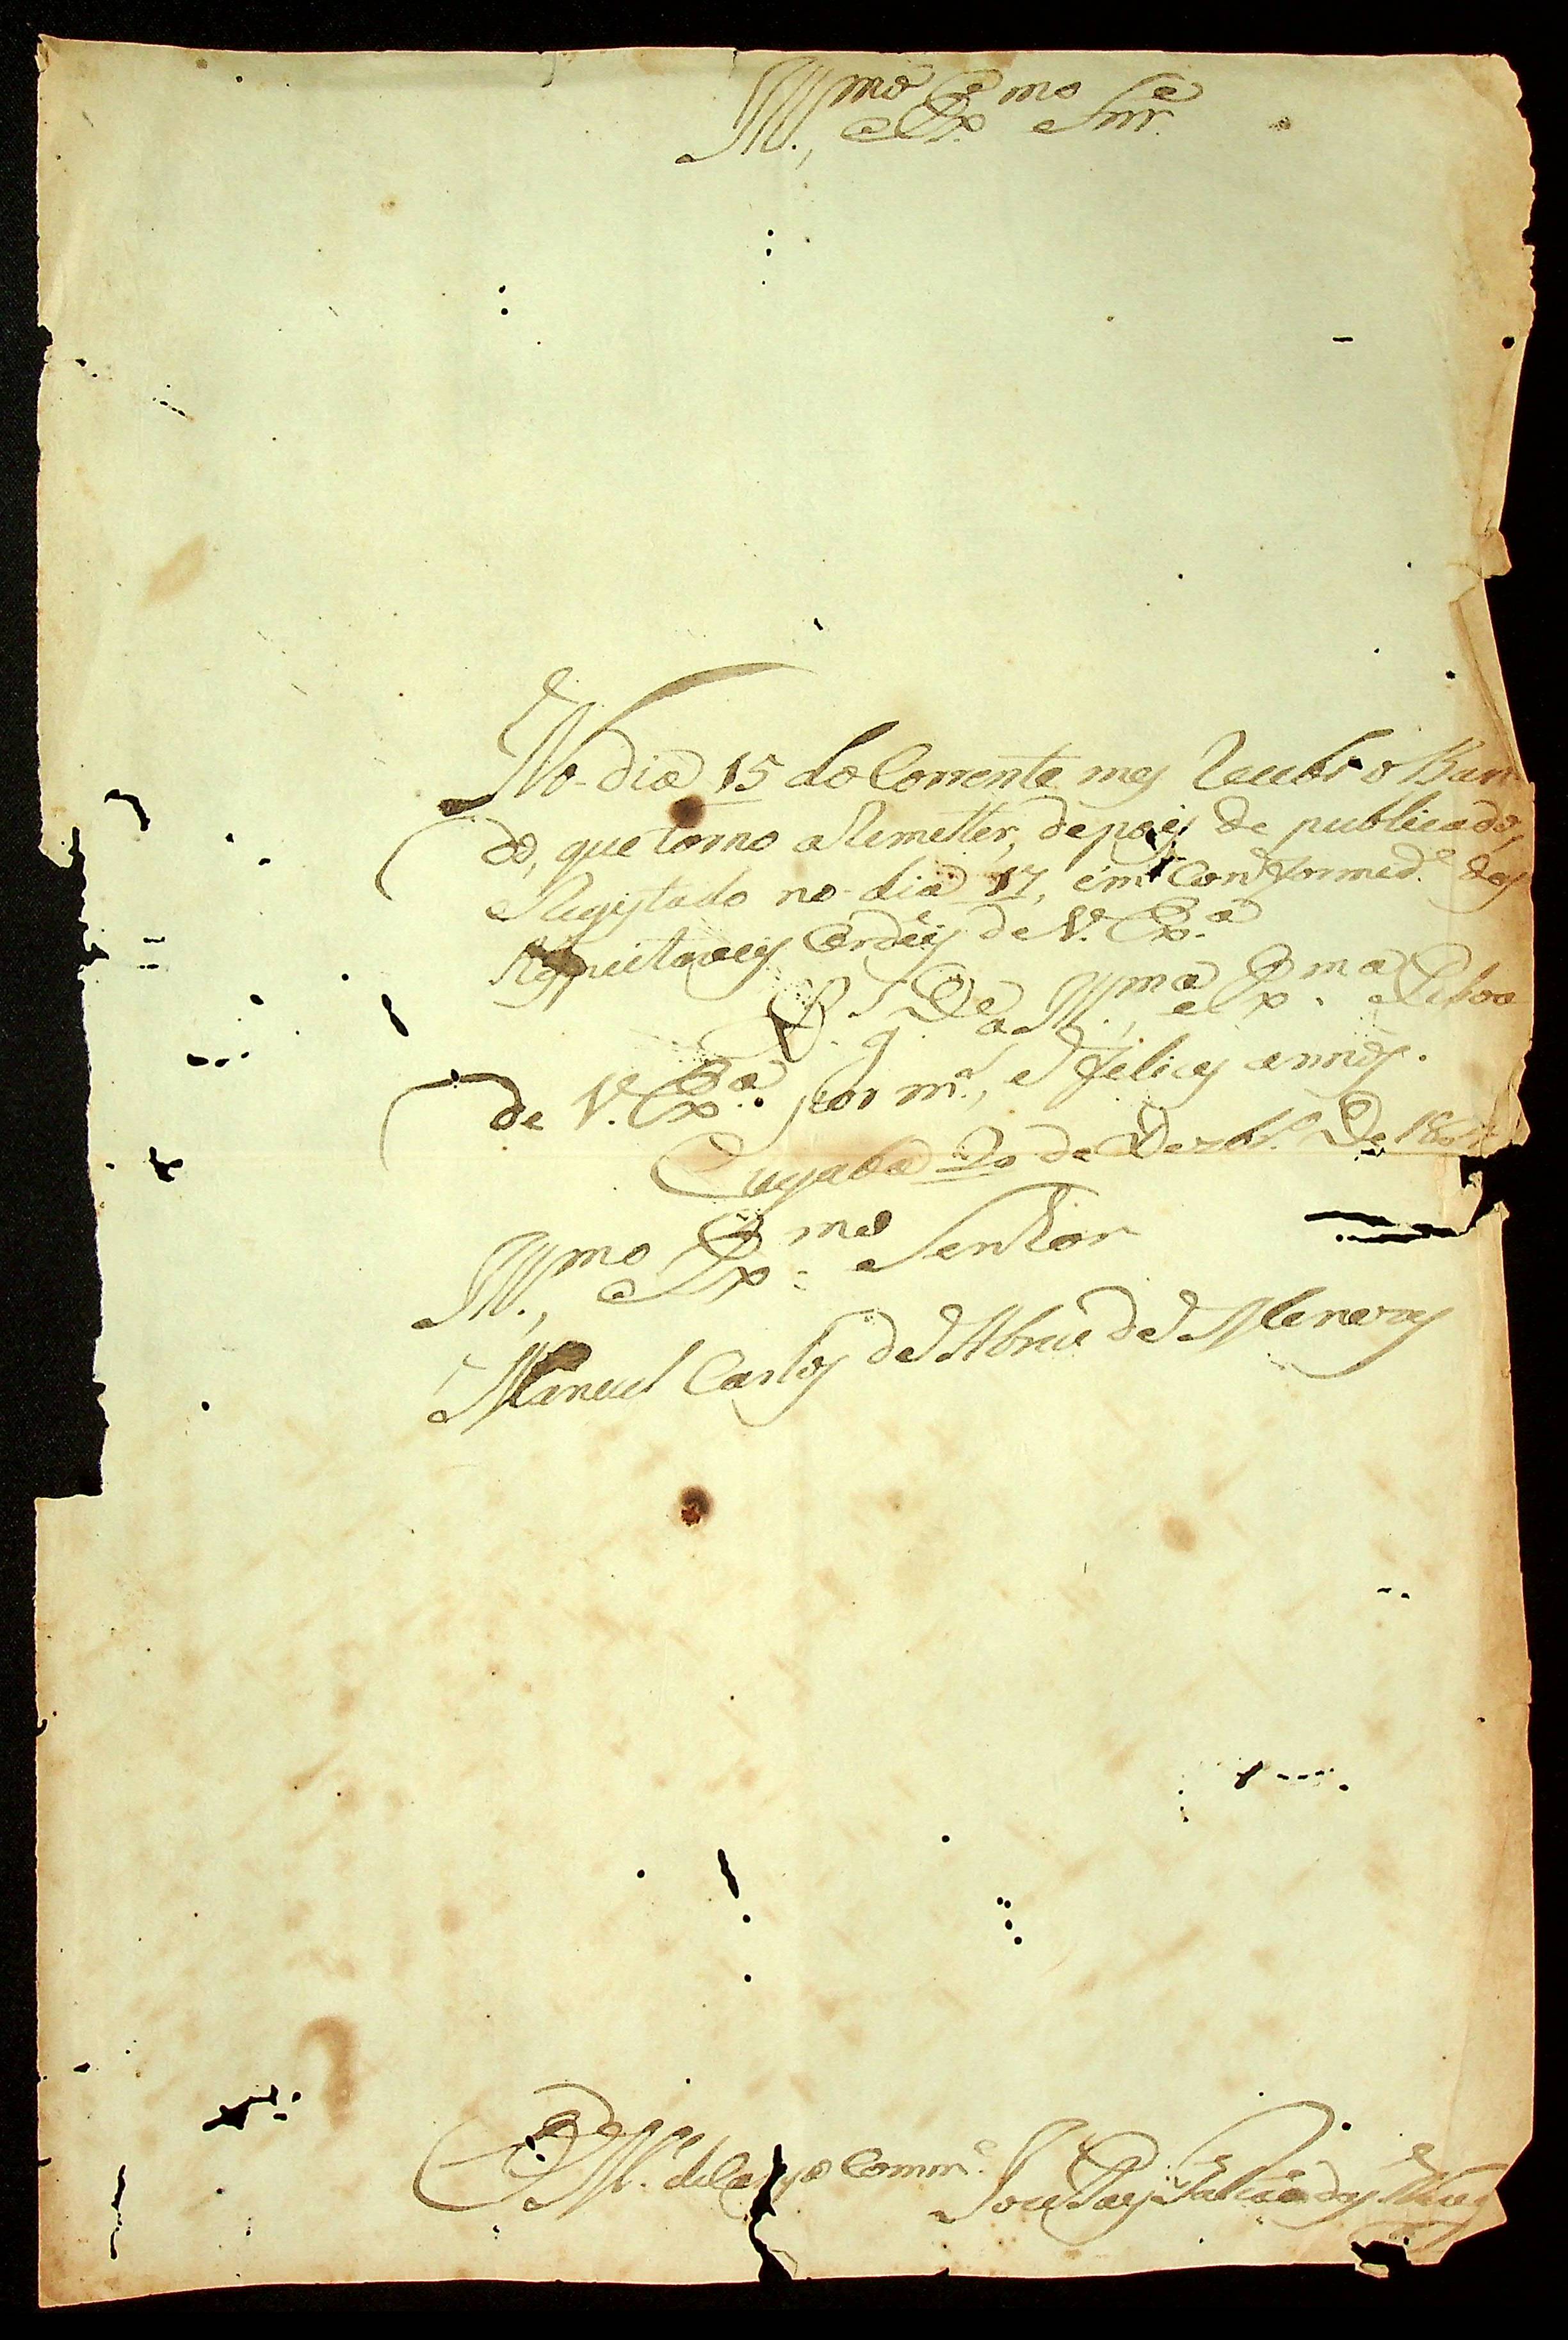 Ill.mo e Ex.mo Snr.
No dia 15 do Corrente mes Recebi o Ban
do, que torno a Remetter, depois de publicado,
e Registado no dia 17, em Conformid.e das
Respeitaveis Ordẽis de V. Ex.a
D.s G.de a Ill.ma e Ex.ma Pessoa
de V. Ex.a por m.s, e felices annos.
Cuyabá 20 de Dezbr.o De
Ill.mo e Ex.mo Senhor
Manuel Carlos de Abreu de Menezes
M.e de Campo Comm.e
Joze Paes Falcão das Neves